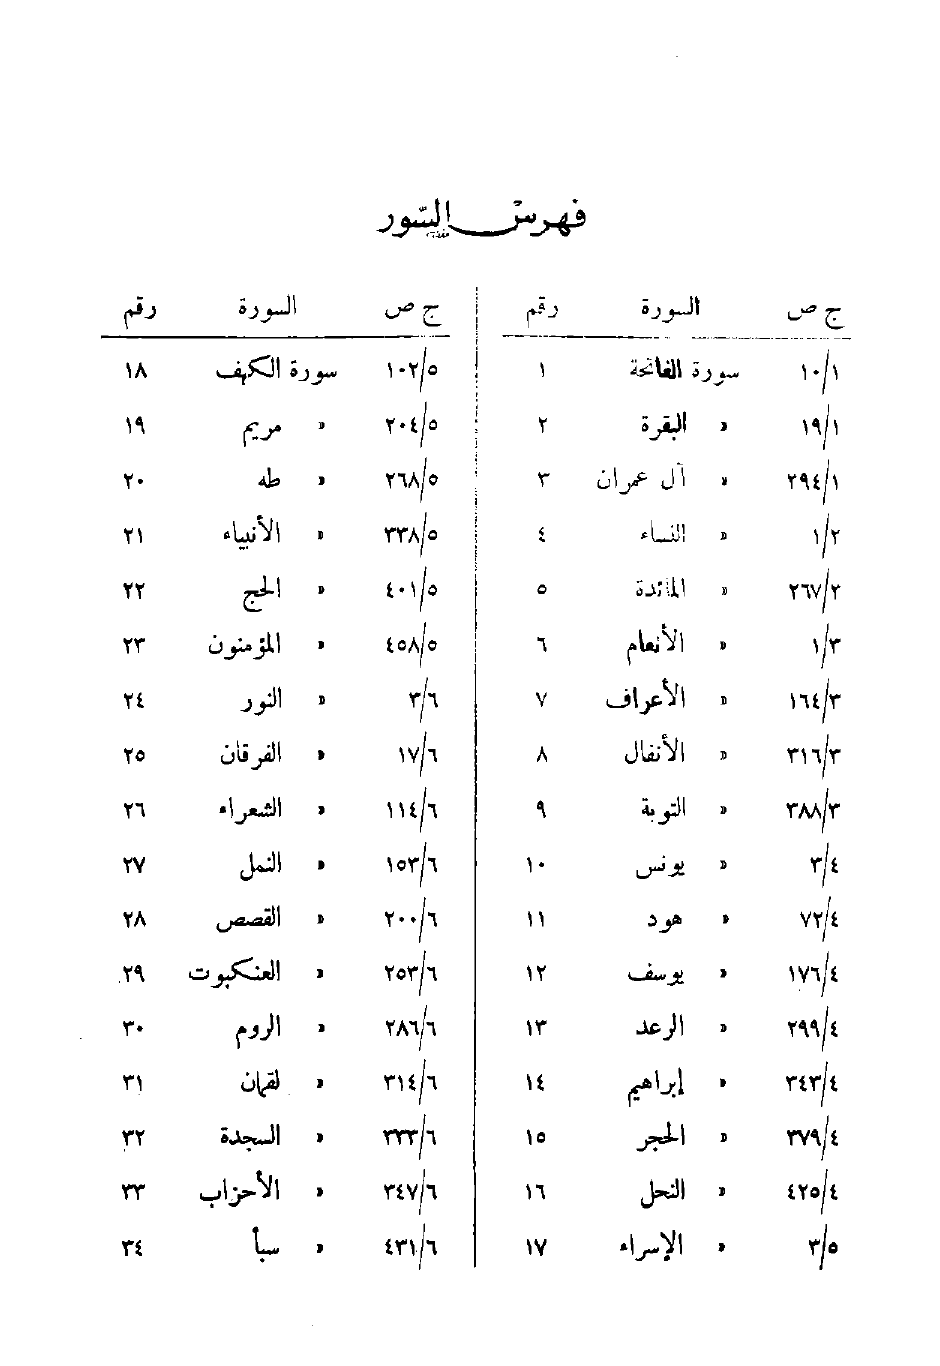 فهرس السّور
ج ص السورة رقم
١٠/١ سورة الفاتحة ١
١٩/١ » البقرة ٢
٢٩٤/١ » آل عمران ٣
١/٢ » النساء ٤
٢٦٧/٢ » المائدة ٥
١/٣ » الأنعام ٦
١٦٤/٣ » الأعراف ٧
٣١٦/٣ » الأنفال ٨
٣٨٨/٣ » التوبة ٩
٣/٤ » يونس ١٠
٧٢/٤ » هود ١١
١٧٦/٤ » يوسف ١٢
٢٩٩/٤ » الرعد ١٣
٣٤٣/٤ » إبراهيم ١٤
٣٧٩/٤ » الحجر ١٥
٤٢٥/٤ » النحل ١٦
٣/٥ » الإسراء ١٧
ج ص السورة رقم
١٠٢/٥ سورة الكهف ١٨
٢٠٤/٥ » مريم ١٩
٢٦٨/٥ » طه ٢٠
٣٣٨/٥ » الأنبياء ٢١
٤٠١/٥ » الحج ٢٢
٤٥٨/٥ » المؤمنون ٢٣
٣/٦ » النور ٢٤
١٧/٦ » الفرقان ٢٥
١١٤/٦ » الشعراء ٢٦
١٥٣/٦ » النمل ٢٧
٢٠٠/٦ » القصص ٢٨
٢٥٣/٦ » العنكبوت ٢٩
٢٨٦/٦ » الروم ٣٠
٣١٤/٦ » لقمان ٣١
٣٣٣/٦ » السجدة ٣٢
٣٤٧/٦ » الأحزاب ٣٣
٤٣١/٦ » سبأ ٣٤